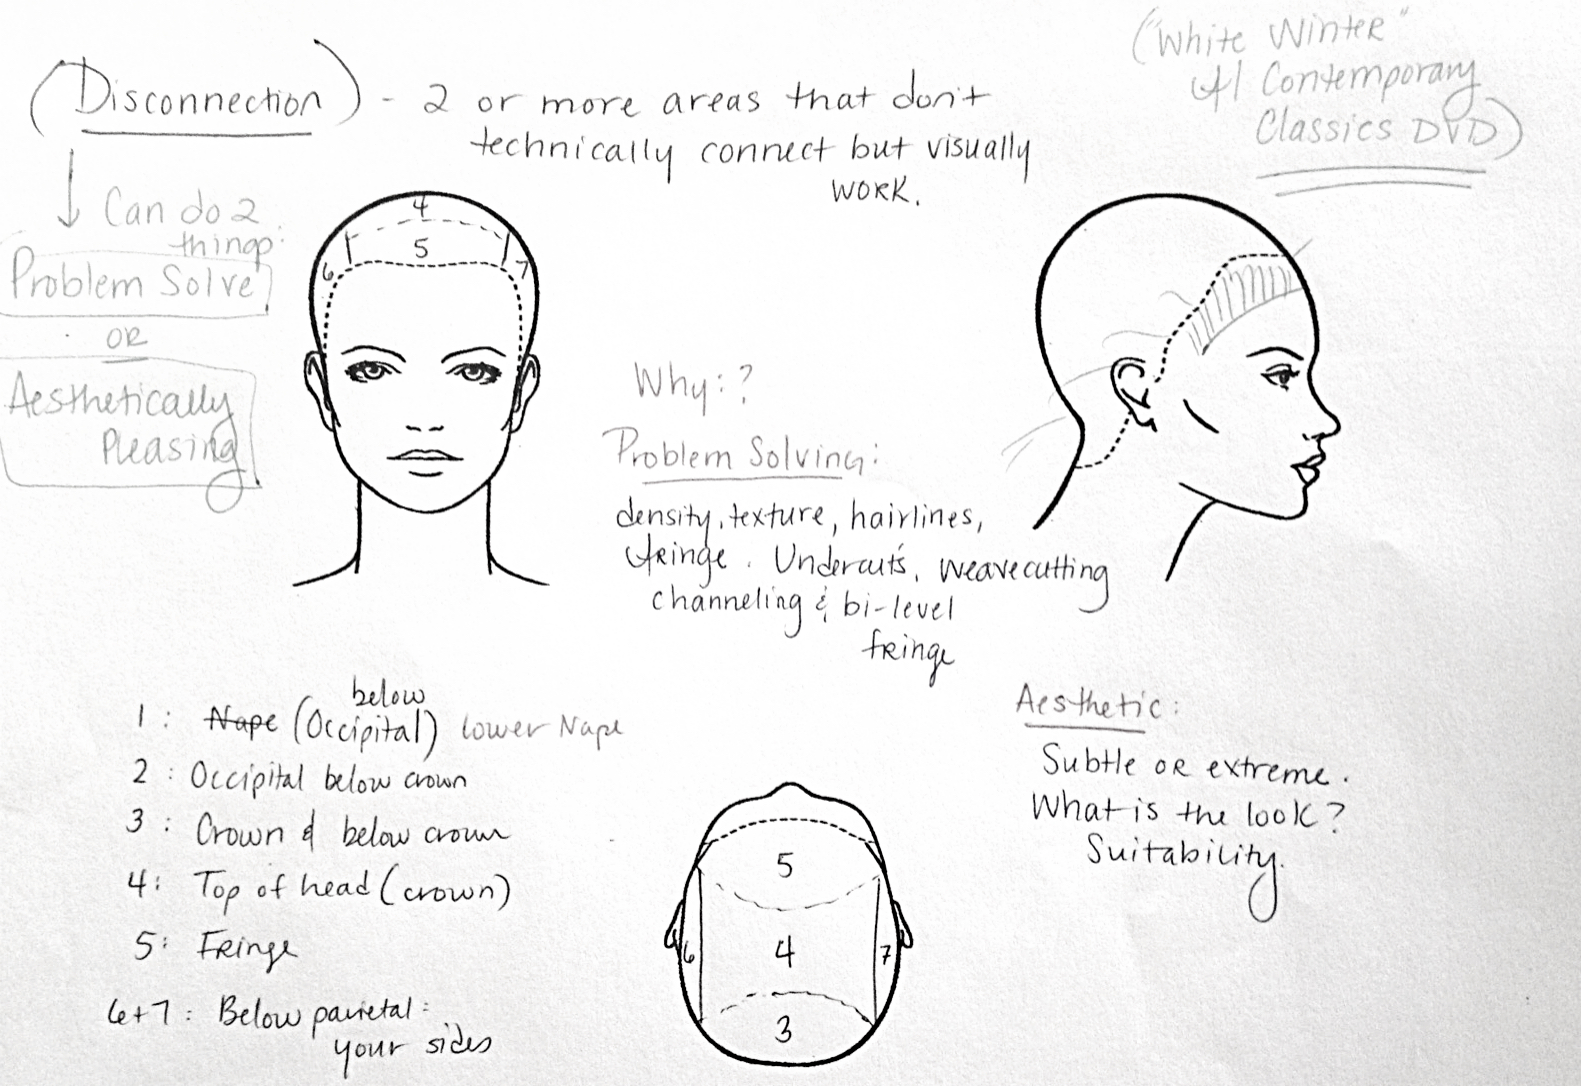 (Disconnection) - 2 or more areas that don't
technically connect but visually
work.
("White Winter"
Contemporary
Classics DVD)
Can do 2
things:
Problem Solve
OR
Aesthetically
Pleasing
4
5
6
7
Why:?
Problem Solving:
density, texture, hairlines,
fringe. Undercuts, weavecutting
channeling & bi-level
fringe
below
1: Nape (Occipital) lower Nape
2: Occipital below crown
3: Crown & below crown
4: Top of head (crown)
5: Fringe
6+7: Below parietal:
your sides
Aesthetic:
Subtle or extreme.
What is the look?
Suitability.
5
6
4
7
3